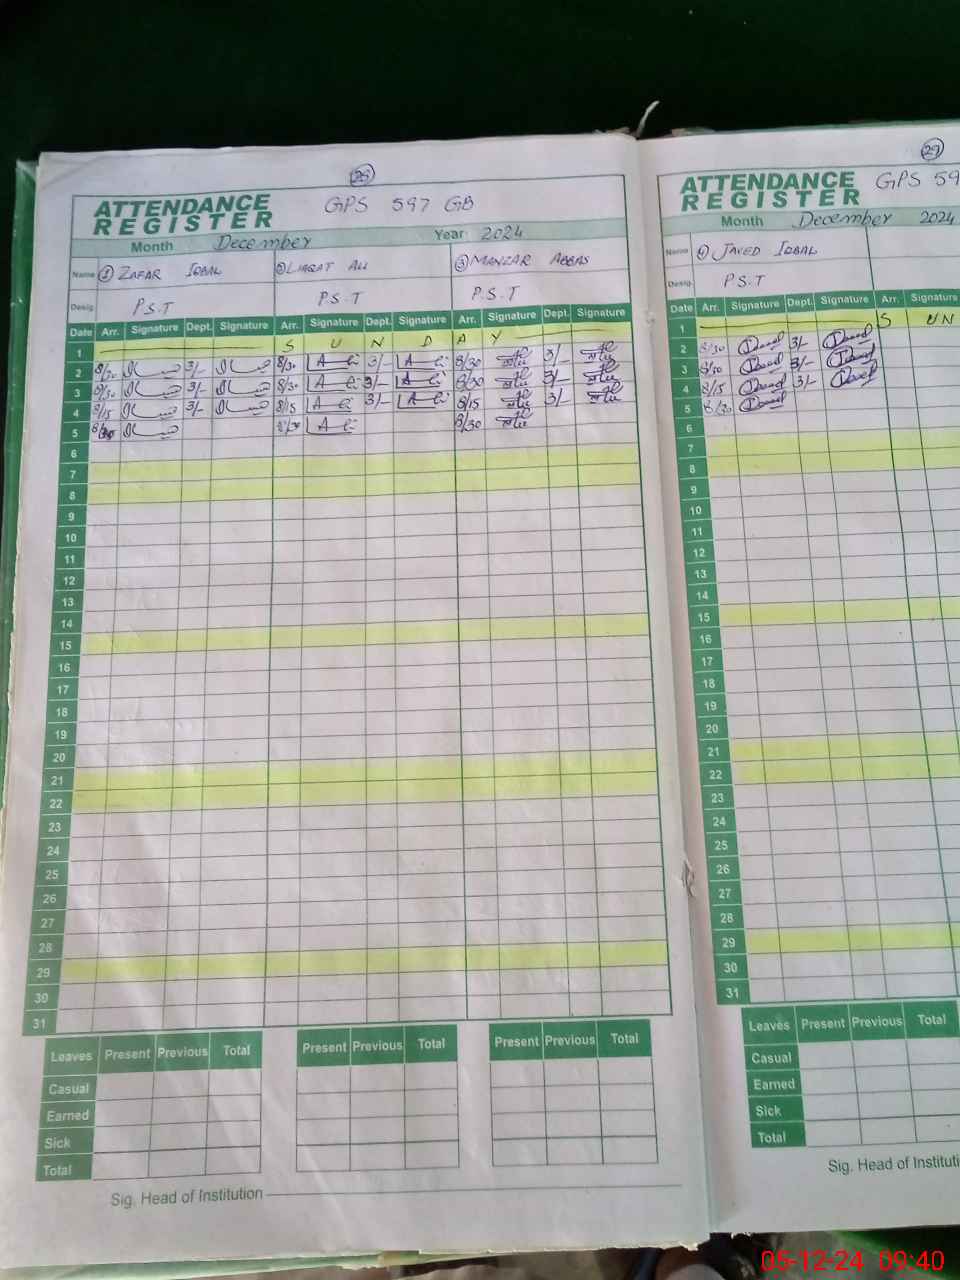 29
ATTENDANCE
REGISTER
GPS 597 GB
Month December Year 2024
Name ① ZAFAR IQBAL ② LIAQAT ALI ③ MANZAR ABBAS
Desig. P.S.T P.S.T P.S.T
Date Arr. Signature Dept. Signature Arr. Signature Dept. Signature Arr. Signature Dept. Signature
1 S U N D A Y
2 8/30 3/- 8/30 3/- 8/30 3/-
3 8/30 3/- 8/30 3/- 8/30 3/-
4 8/15 3/- 8/15 3/- 8/15 3/-
5 8/30 8/30 8/30
6
7
8
9
10
11
12
13
14
15
16
17
18
19
20
21
22
23
24
25
26
27
28
29
30
31
Leaves Present Previous Total Present Previous Total Present Previous Total
Casual
Earned
Sick
Total
Sig. Head of Institution
29
ATTENDANCE
REGISTER
GPS 59
Month December 2024
Name JAVED IQBAL
Desig. P.S.T
Date Arr. Signature Dept. Signature Arr. Signature
1 S U N
2 8/30 3/-
3 8/30 3/-
4 8/15 3/-
5 8/30
6
7
8
9
10
11
12
13
14
15
16
17
18
19
20
21
22
23
24
25
26
27
28
29
30
31
Leaves Present Previous Total
Casual
Earned
Sick
Total
Sig. Head of Instituti
05-12-24 09:40